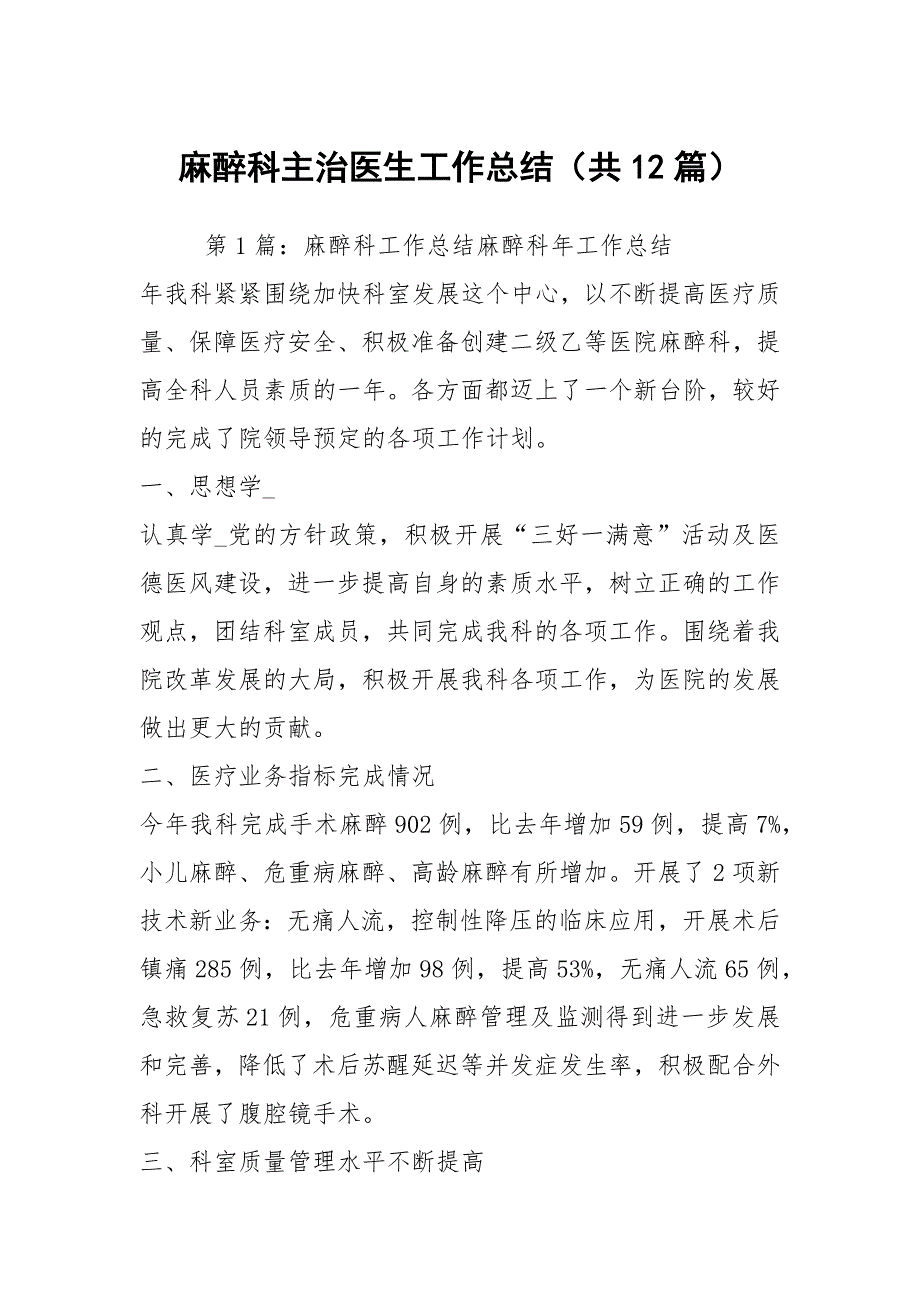 麻醉科主治医生工作总结（共12篇）
第1篇：麻醉科工作总结麻醉科年工作总结
年我科紧紧围绕加快科室发展这个中心，以不断提高医疗质
量、保障医疗安全、积极准备创建二级乙等医院麻醉科，提
高全科人员素质的一年。各方面都迈上了一个新台阶，较好
的完成了院领导预定的各项工作计划。
一、思想学_
认真学_党的方针政策，积极开展“三好一满意”活动及医
德医风建设，进一步提高自身的素质水平，树立正确的工作
观点，团结科室成员，共同完成我科的各项工作。围绕着我
院改革发展的大局，积极开展我科各项工作，为医院的发展
做出更大的贡献。
二、医疗业务指标完成情况
今年我科完成手术麻醉902例，比去年增加59例，提高7%，
小儿麻醉、危重病麻醉、高龄麻醉有所增加。开展了2项新
技术新业务：无痛人流，控制性降压的临床应用，开展术后
镇痛285例，比去年增加98例，提高53%，无痛人流65例，
急救复苏21例，危重病人麻醉管理及监测得到进一步发展
和完善，降低了术后苏醒延迟等并发症发生率，积极配合外
科开展了腹腔镜手术。
三、科室质量管理水平不断提高